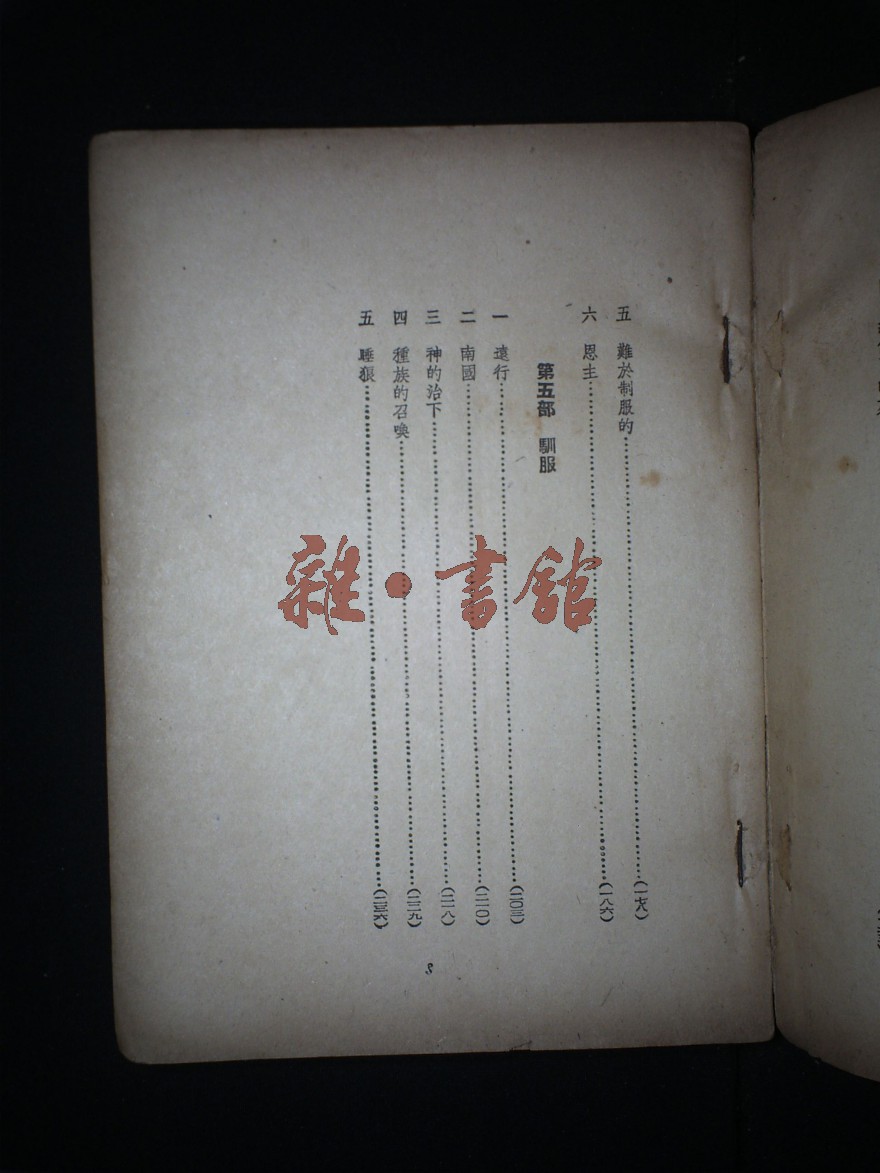 五 難於制服的(一七八)
六 恩主(一八六)
第五部 馴服
一 遠行(二〇三)
二 南國(二一〇)
三 神的治下(二一八)
四 種族的召喚(二二九)
五 睡狼(二三六)
2
雜•書館